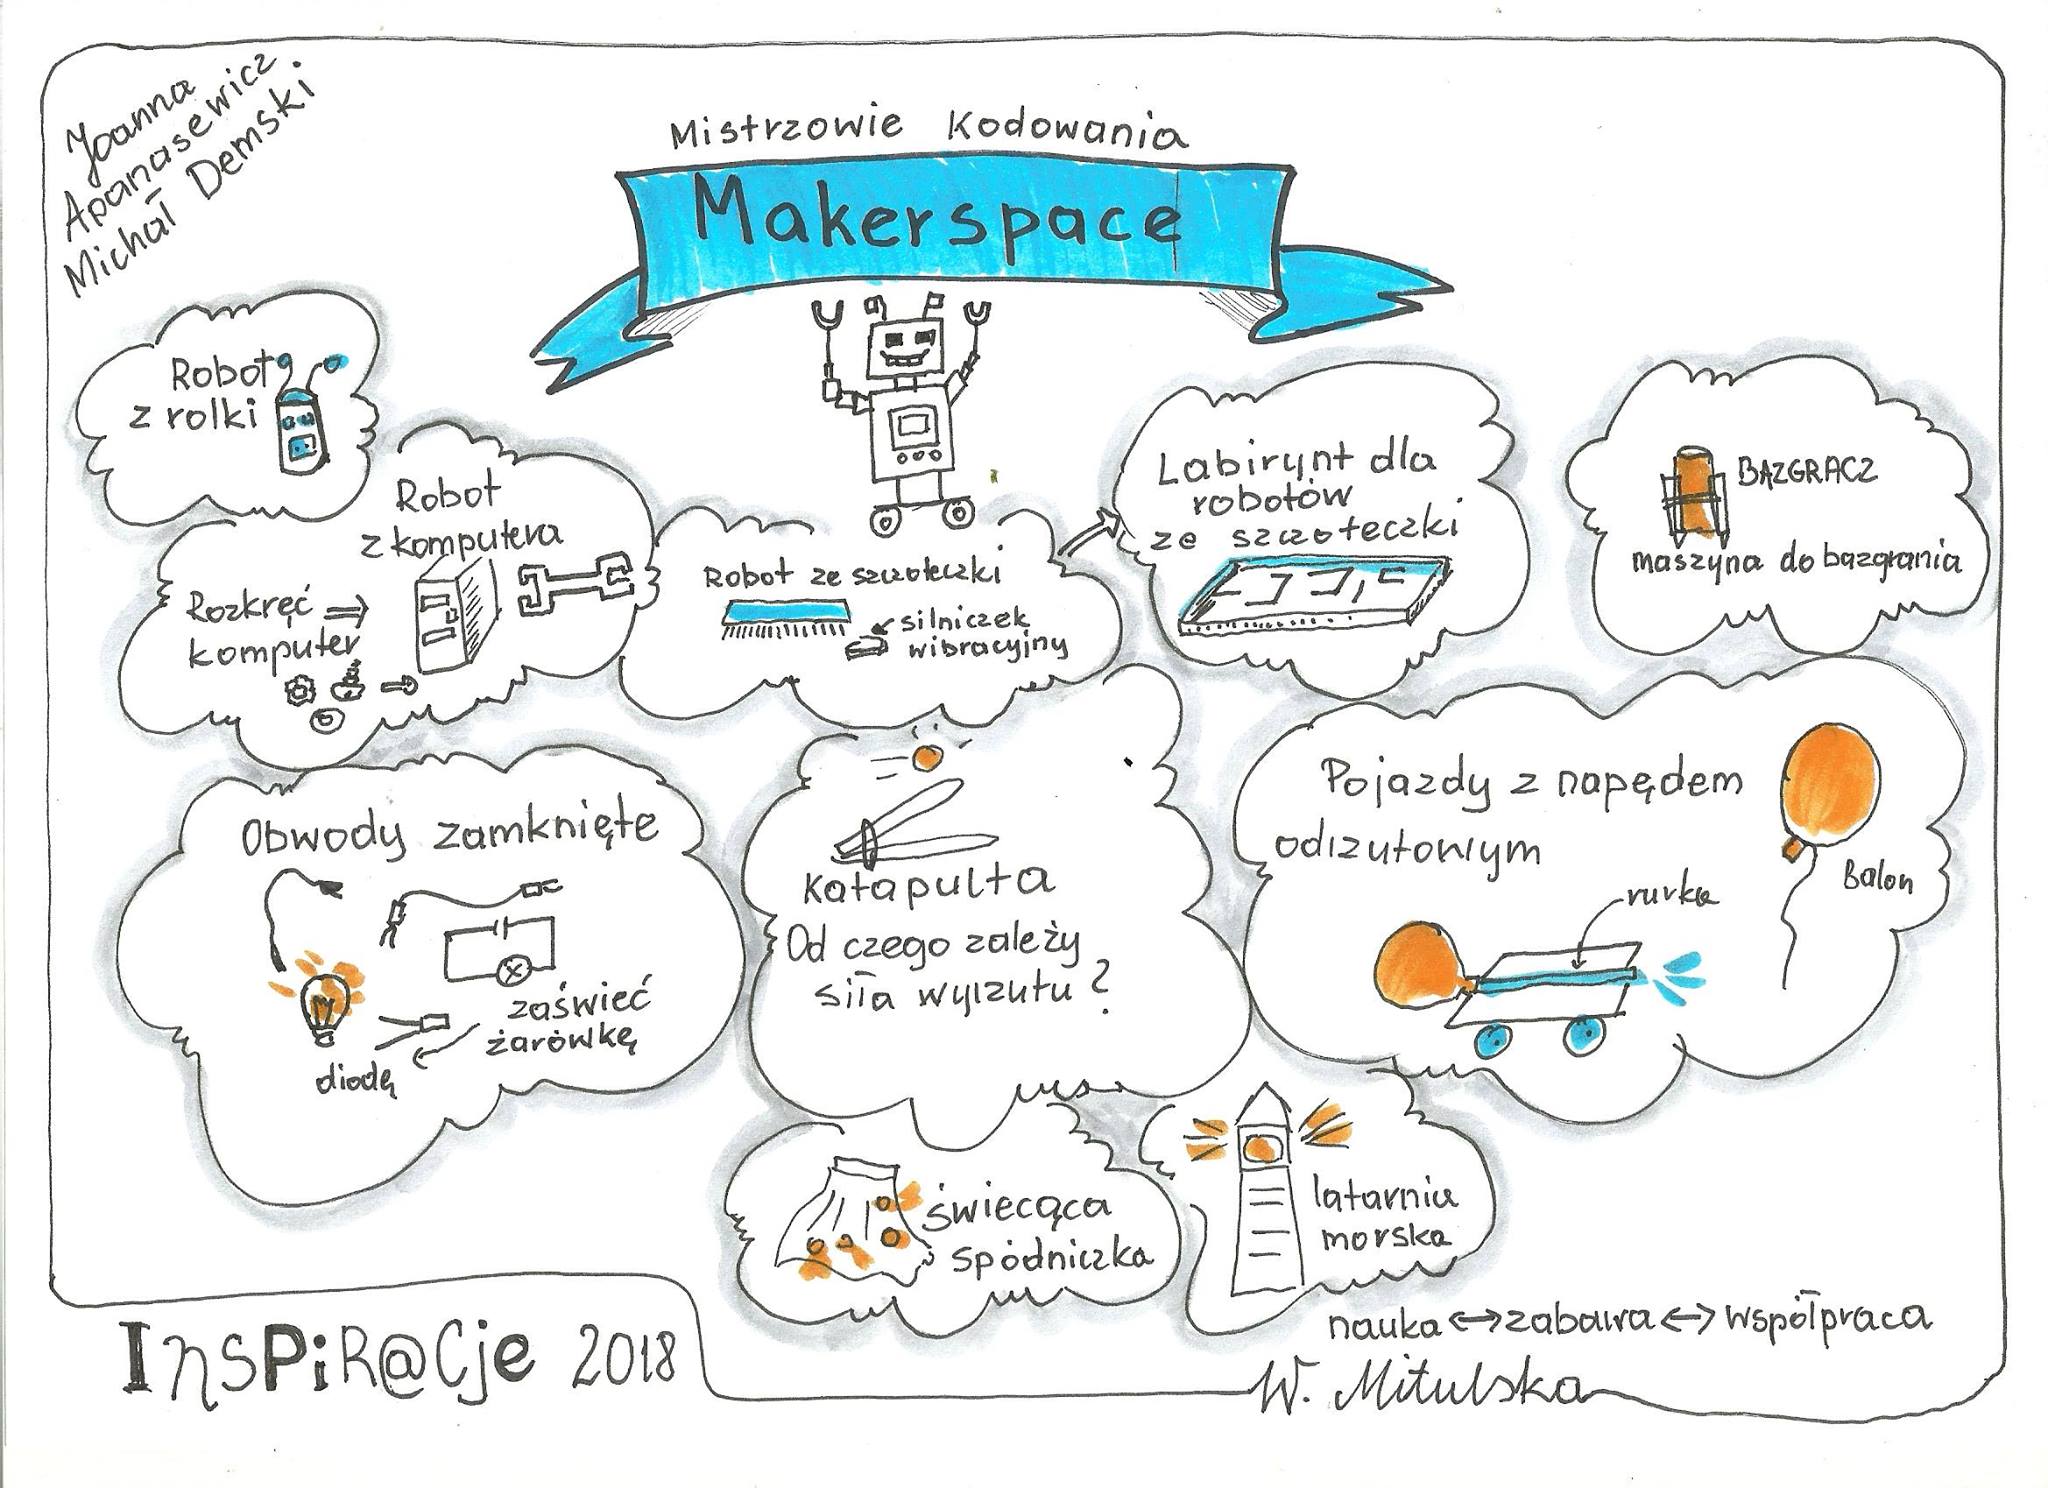 Joanna
Apanasewicz
Michał Demski
Mistrzowie Kodowania
Makerspace
Robot
z rolki
Robot
z komputera
Rozkręć
komputer
Robot ze szczoteczki
silniczek
wibracyjny
Labirynt dla
robotów
ze szczoteczki
BAZGRACZ
maszyna do bazgrania
Obwody zamknięte
zaświeć
żarówkę
diodę
Katapulta
Od czego zależy
siła wyrzutu?
Pojazdy z napędem
odrzutowym
rurka
Balon
świecąca
spódniczka
latarnia
morska
nauka <-> zabawa <-> współpraca
InsPiR@Cje 2018
W. Mitulska